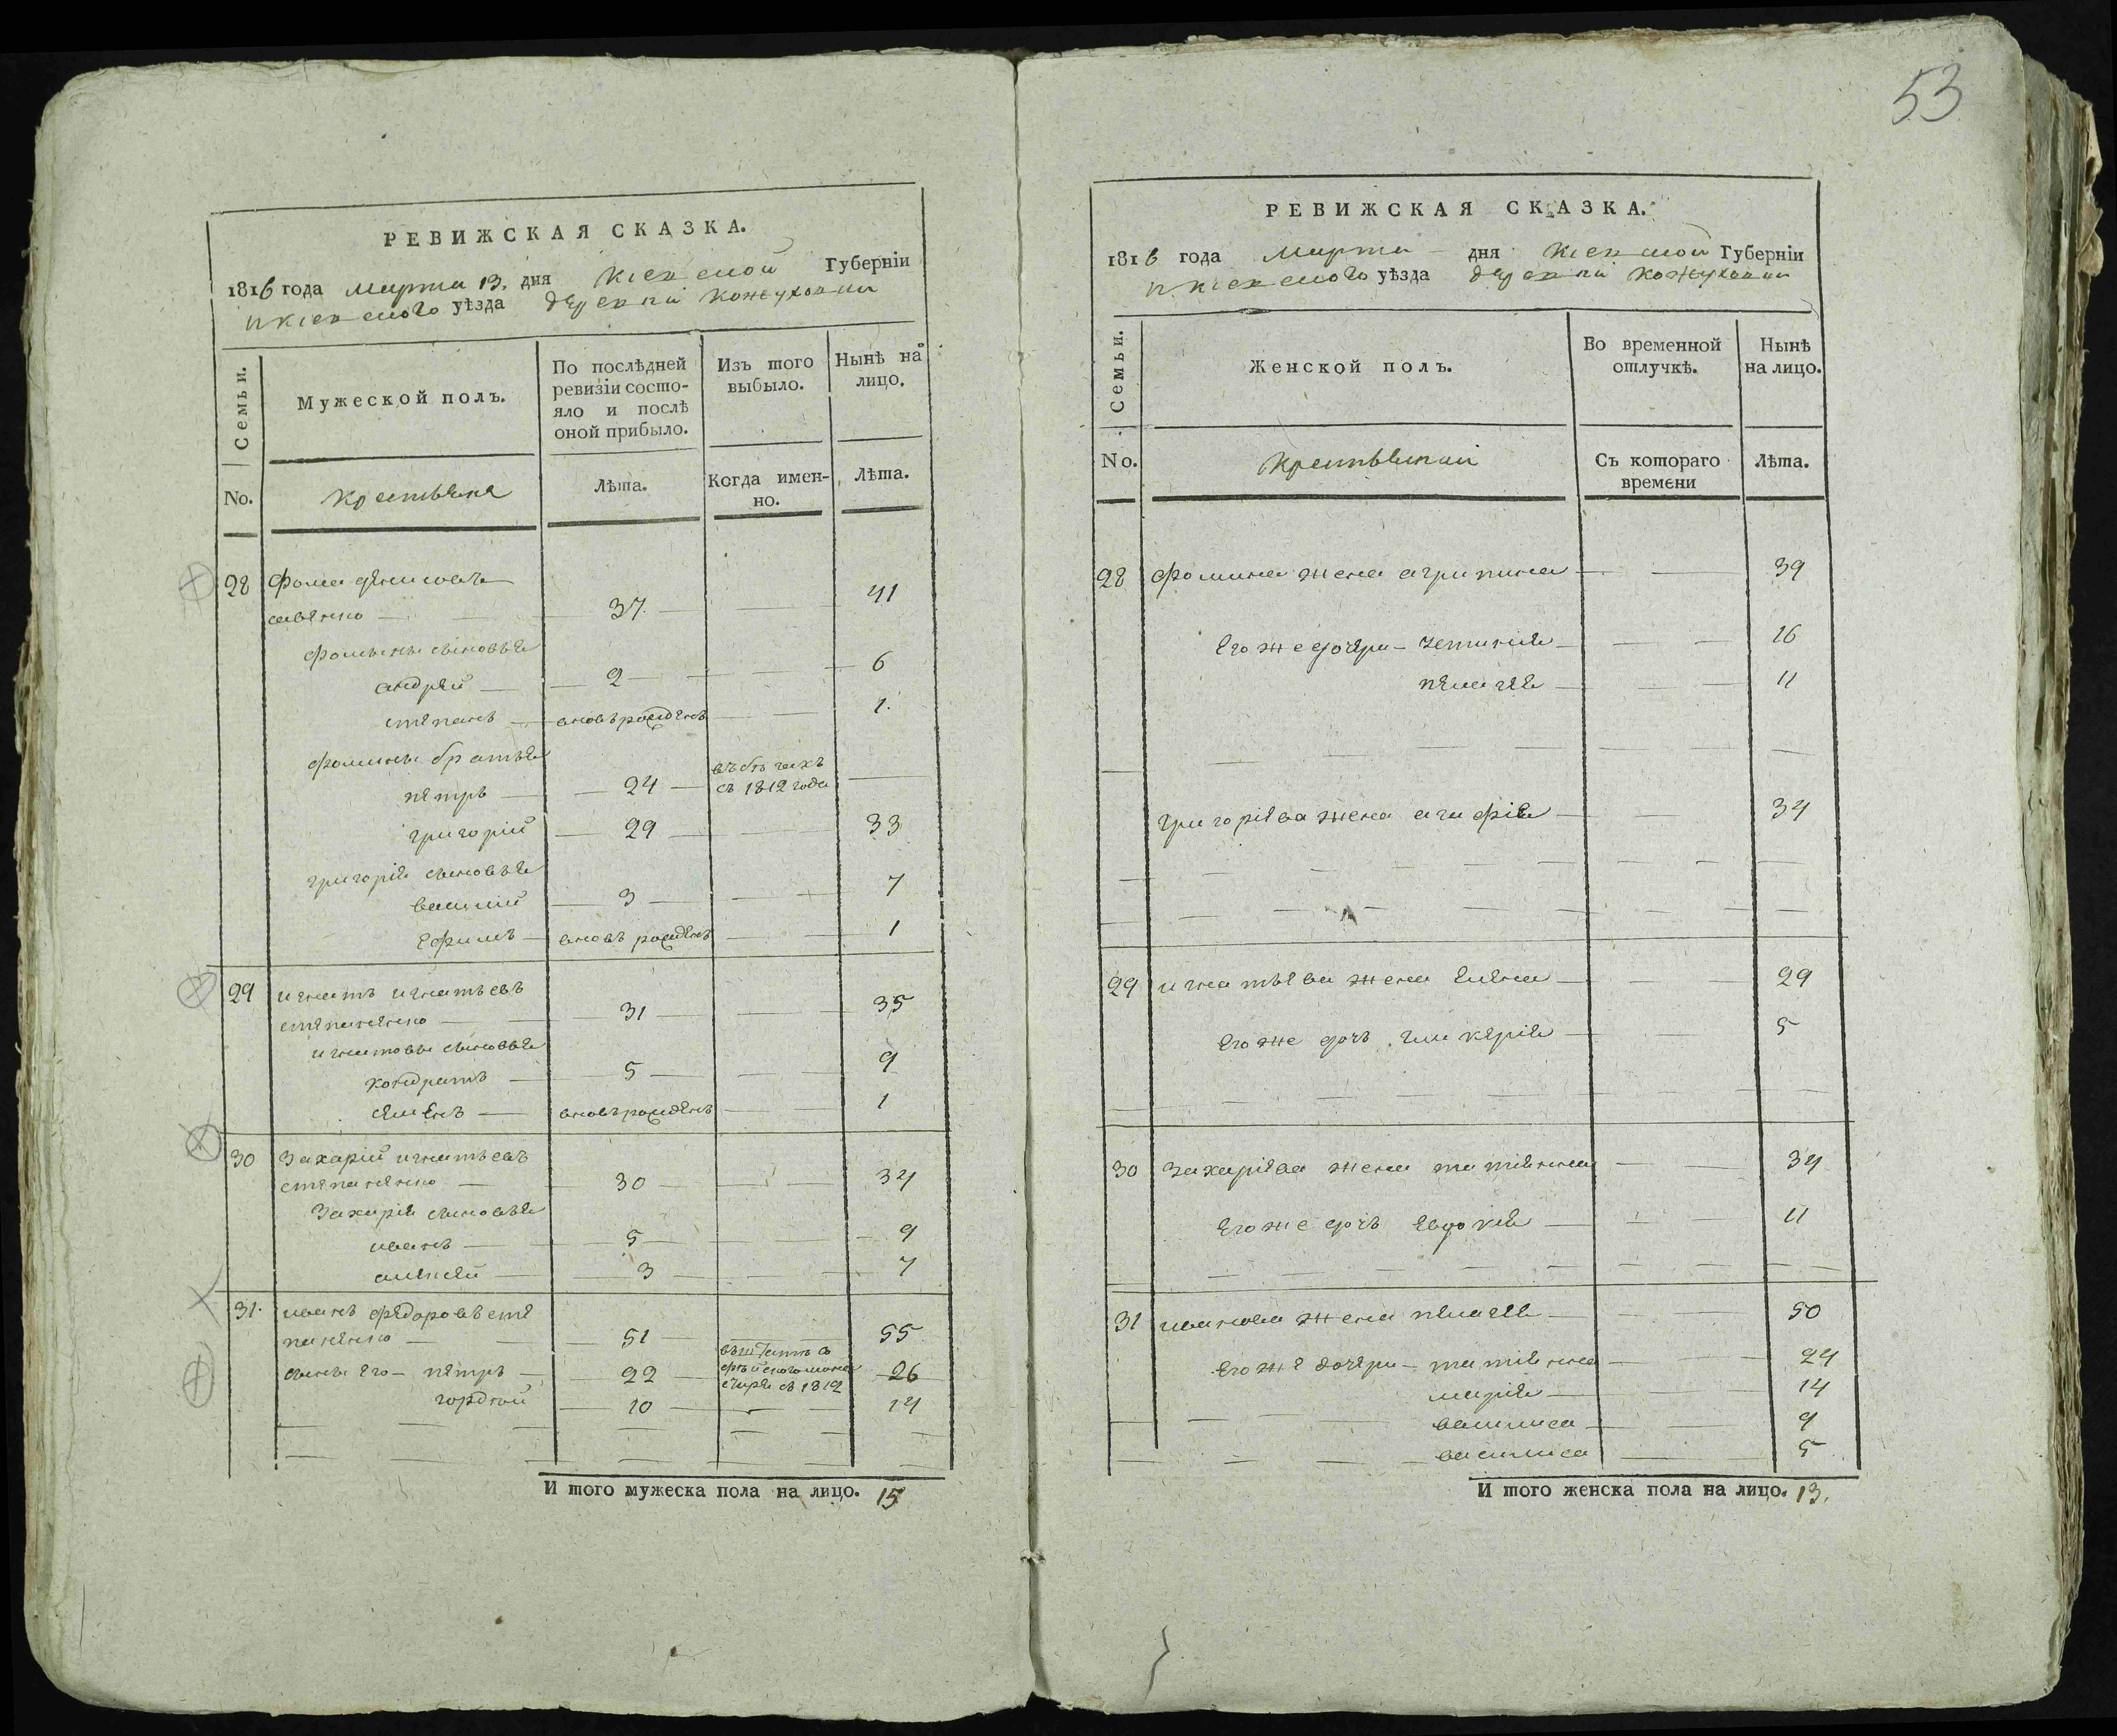 53
РЕВИЖСКАЯ СКАЗКА.
1816 года марта 13. дня Кіевской Губерніи
и Кіевского уѣзда деревни Кожуховки
Семьи.
Мужеской полъ.
По послѣдней ревизіи состояло и послѣ оной прибыло.
Изъ того выбыло.
Нынѣ на лицо.
No.
крестьяне
Лѣта.
Когда именно.
Лѣта.
28 Фома денисовъ
савенко 37. 41
Фомины сыновья
андрей 2 6
степанъ вновьрожденъ 1.
Фомины братья
петръ 24 въ бѣгахъ съ 1812 года
григорій 29 33
григорія сыновья
василій 3 7
Ефимъ вновь рожденъ 1
29 игнатъ игнатьевъ
степаненко 31 35
игнатовы сыновья
кондратъ 5 9
семенъ вновьрожденъ 1
30 Захарій игнатьевъ
степаненко 30 34
Захарія сыновья
иванъ 5 9
алексей 3 7
31. иванъ федоровъ сте
паненко 51 55
сыны его - петръ 22 съ 1812 26
гордѣй 10 14
И того мужеска пола на лицо. 15
РЕВИЖСКАЯ СКАЗКА.
1816 года марта дня Кіевской Губерніи
и Кіевского уѣзда деревни Кожуховки
Семьи.
Женской полъ.
Во временной отлучкѣ.
Нынѣ на лицо.
No.
крестьянки
Съ котораго времени
Лѣта.
28 Фомина жена агрипина 39
Его же дочери - 16
пелагея 11
григоріева жена агафія 34
29 игнатьева жена Елена 29
Его же дочь гликерія 5
30 Захаріева жена татіянна 34
Его же дочь Евдокія 11
31 иванова жена пелагея 50
Его же дочери - татіянна 24
марія 14
василиса 9
василиса 5
И того женска пола на лицо. 13.